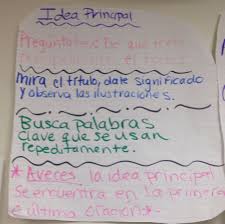 Idea Principal
Preguntate: De que trata
mira el título, date significado
y observa las ilustraciones.
Busca palabras
clave que se usan
repeditamente.
* Aveces, la idea principal
se encuentra en la primera
e última oración*.